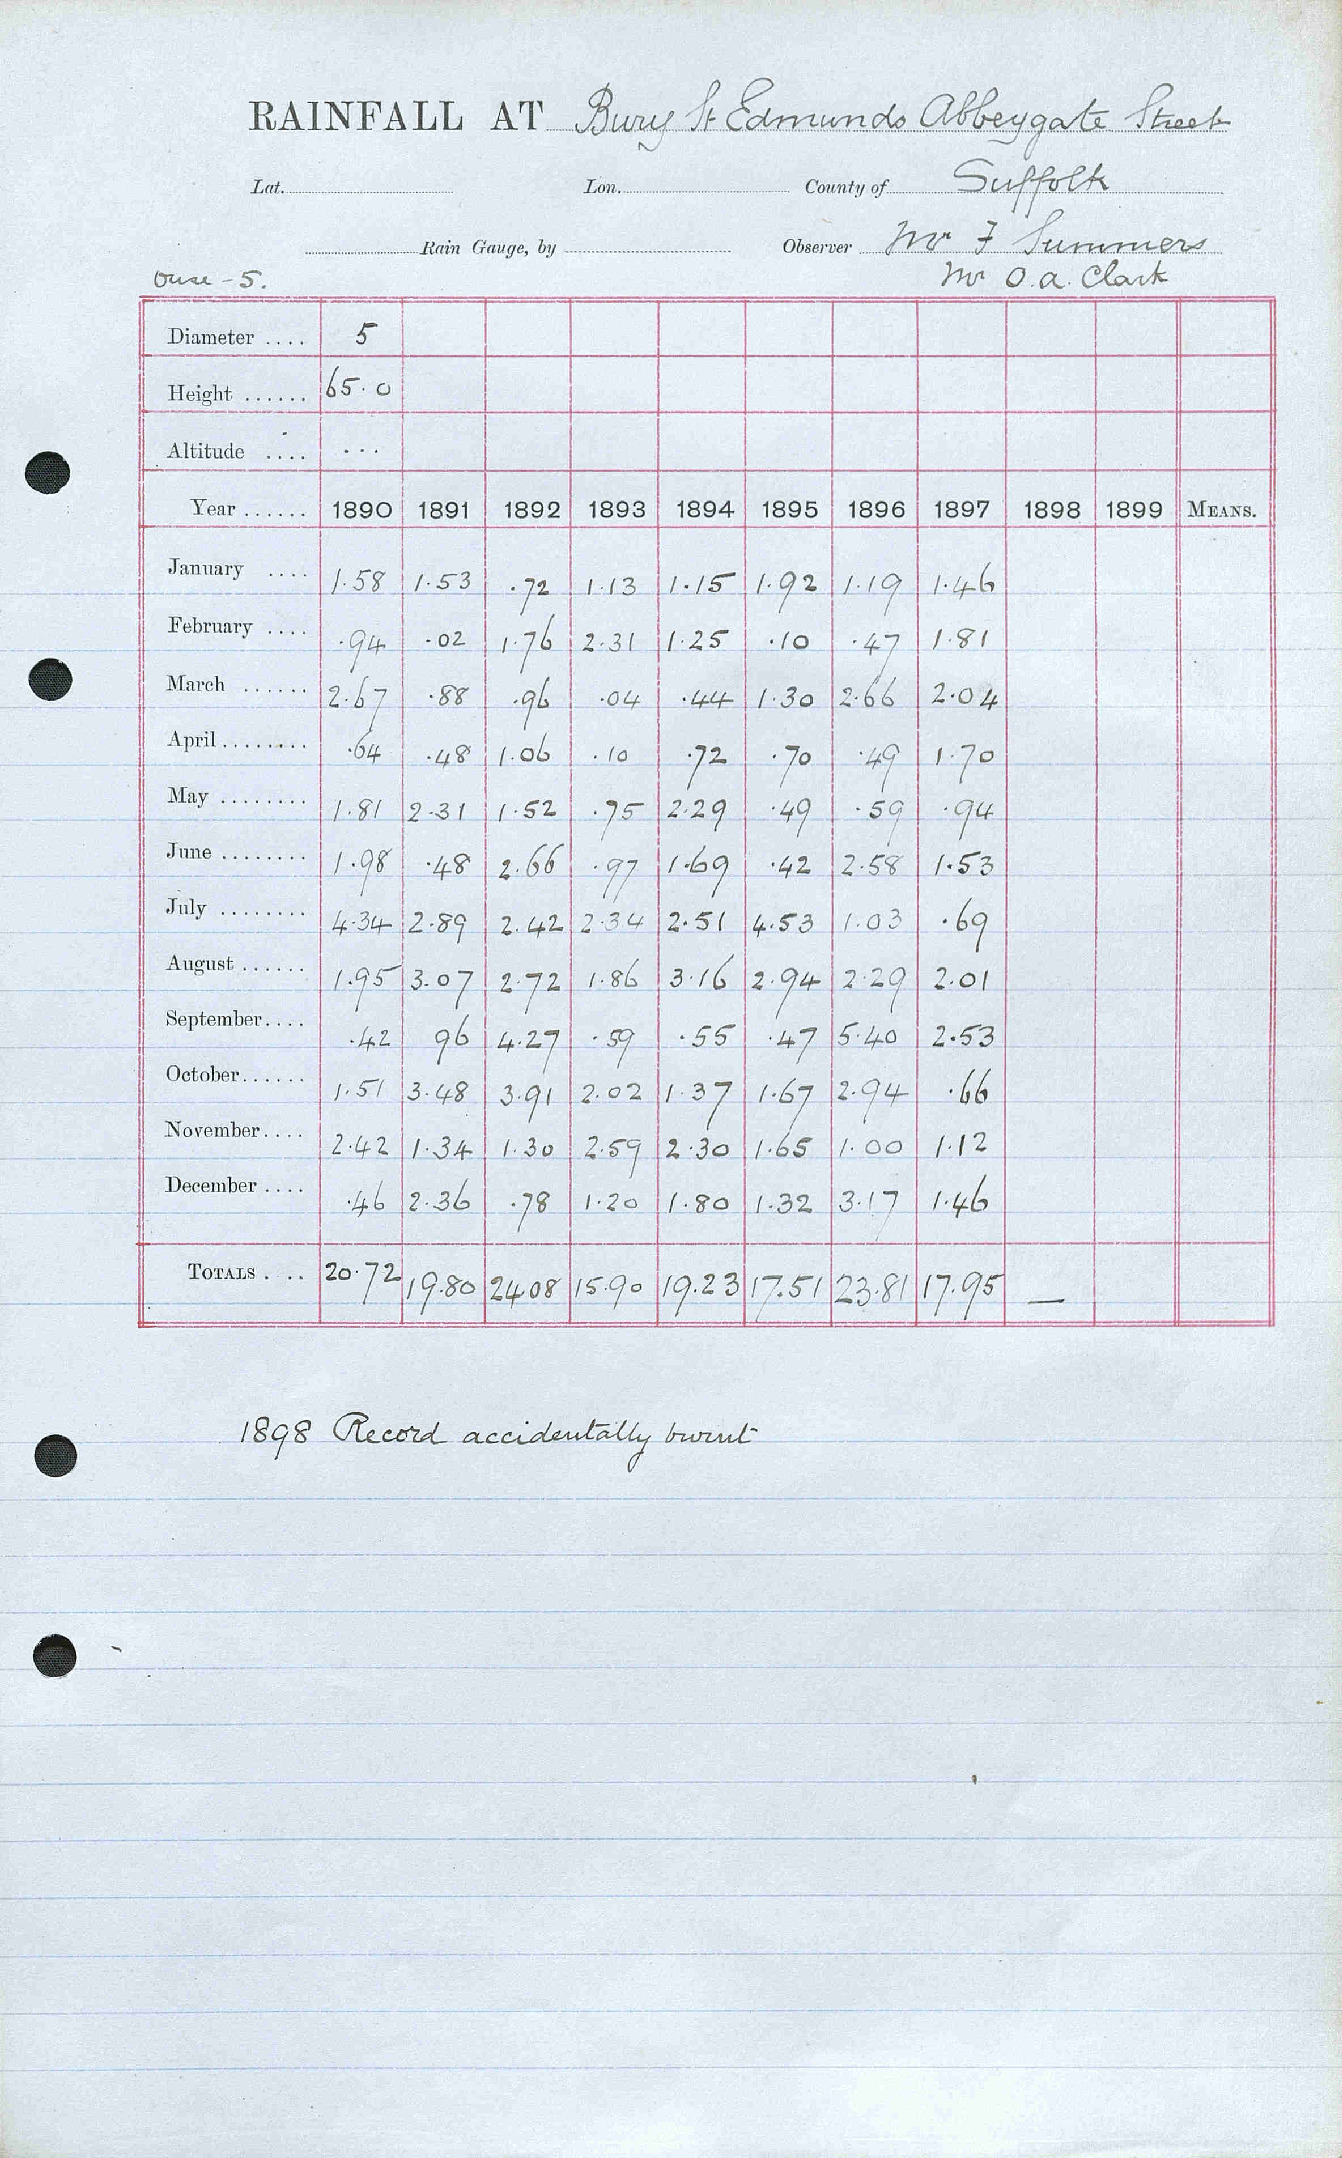 RAINFALL AT Bury St Edmunds Abbeygate Street
Lat. Lon. County of Suffolk
Rain Gauge, by Observer Mr F Summers
Ouse - 5. Mr O.A. Clark
Diameter .... 5
Height ...... 65.0
Altitude .... ...
Year ...... 1890 1891 1892 1893 1894 1895 1896 1897 1898 1899 MEANS.
January .... 1.58 1.53 .72 1.13 1.15 1.92 1.19 1.46
February .... .94 .02 1.76 2.31 1.25 .10 .47 1.81
March ...... 2.67 .88 .96 .04 .44 1.30 2.66 2.04
April ........ .64 .48 1.06 .10 .72 .70 .49 1.70
May ........ 1.81 2.31 1.52 .75 2.29 .49 .59 .94
June ........ 1.98 .48 2.66 .97 1.69 .42 2.58 1.53
July ........ 4.34 2.89 2.42 2.34 2.51 4.53 1.03 .69
August ...... 1.95 3.07 2.72 1.86 3.16 2.94 2.29 2.01
September.... .42 96 4.27 .59 .55 .47 5.40 2.53
October...... 1.51 3.48 3.91 2.02 1.37 1.67 2.94 .66
November.... 2.42 1.34 1.30 2.59 2.30 1.65 1.00 1.12
December .... .46 2.36 .78 1.20 1.80 1.32 3.17 1.46
TOTALS . .. 20.72 19.80 24.08 15.90 19.23 17.51 23.81 17.95 —
1898 Record accidentally burnt